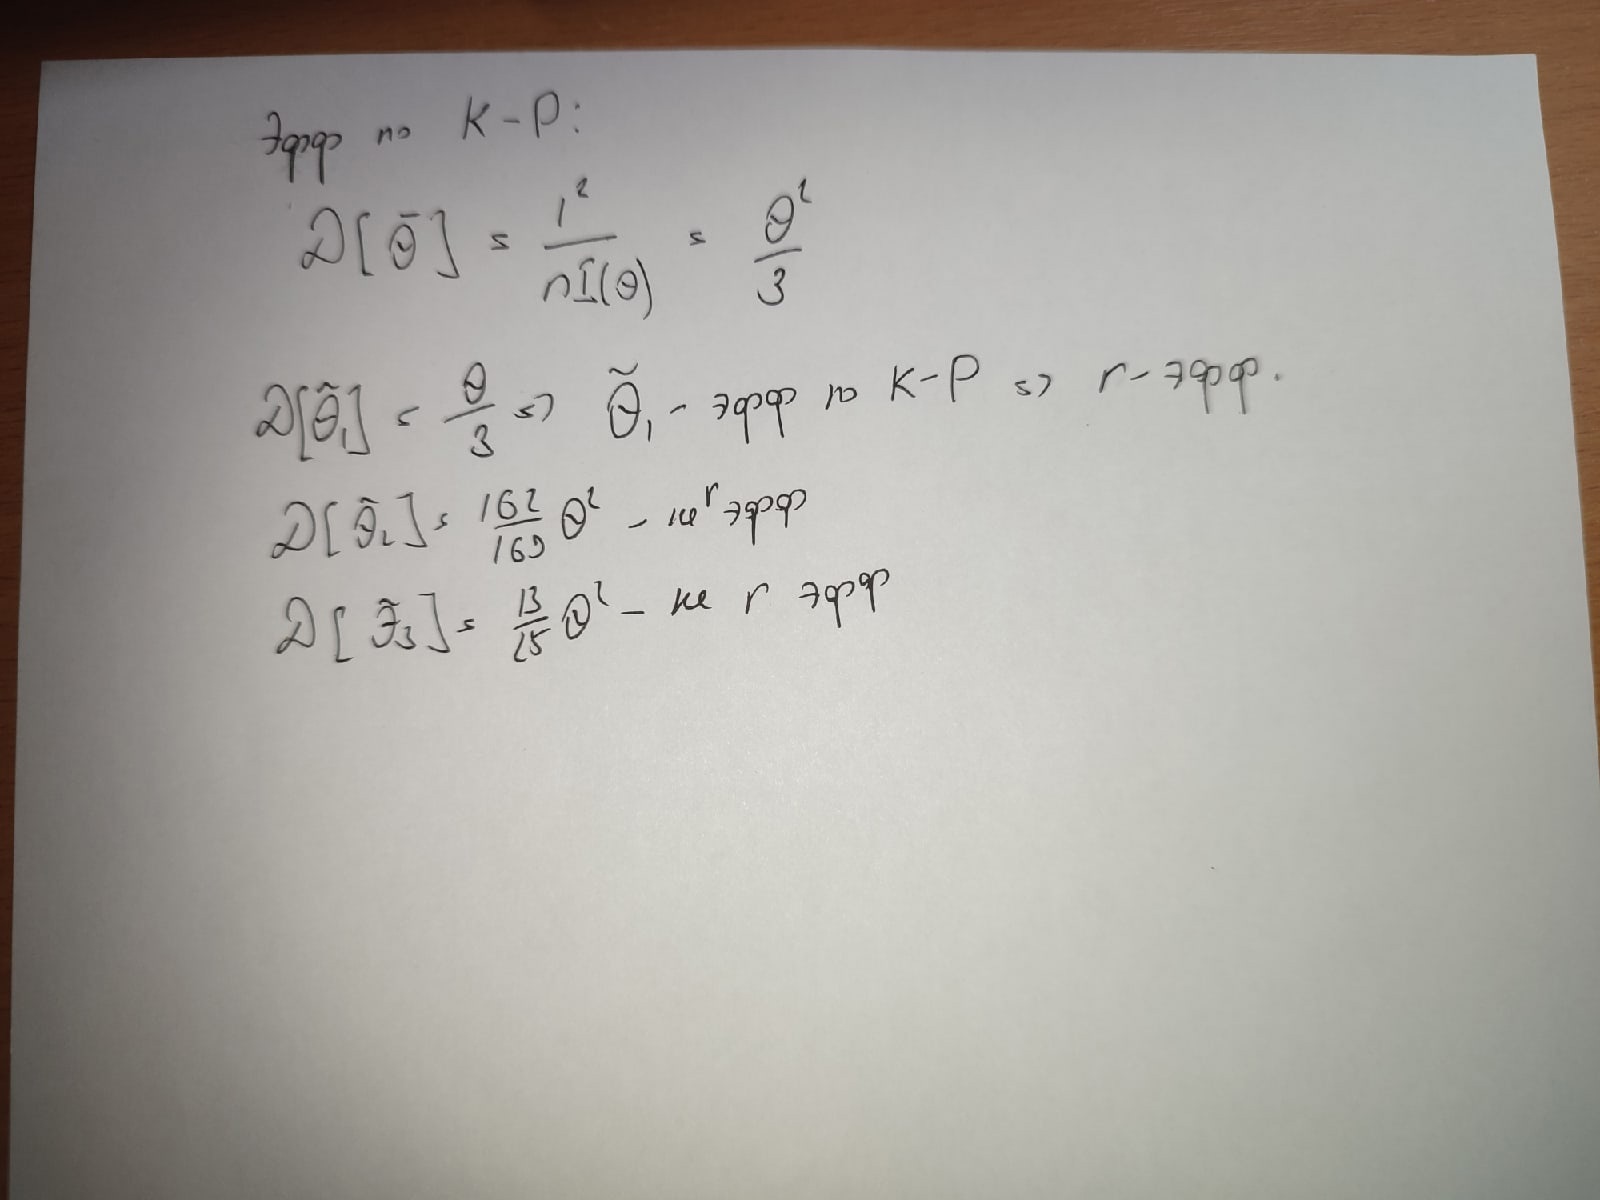 эфф по К-Р:
D[θ̃] = 1² / nI(θ) = θ² / 3
D[θ̃₁] = θ / 3 => θ̃₁ - эфф по К-Р => r-эфф.
D[θ̃₂] = 162/169 θ² - не r эфф
D[θ̃₃] = 13/25 θ² - не r эфф